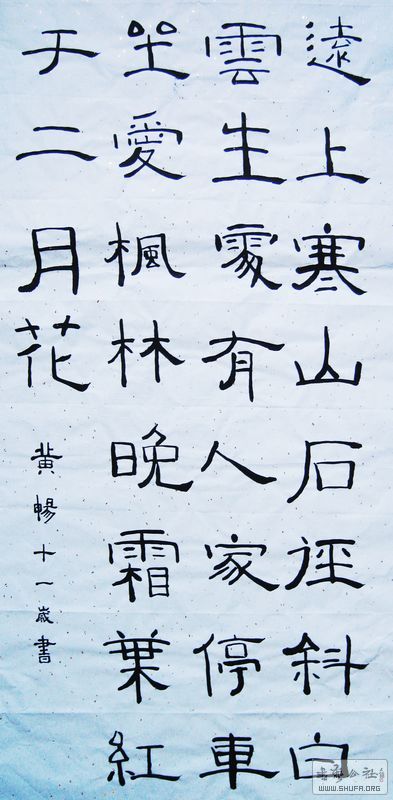 遠上寒山石徑斜白
雲生處有人家停車
坐愛楓林晚霜葉紅
于二月花
黄暢十一歲書
WWW.SHUFA.ORG